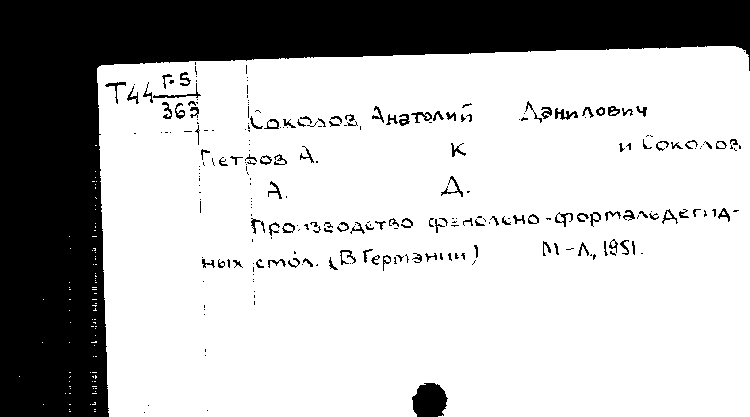 Т44 Г-5
363
Соколов, Анатолий Данилович
Петров А. К и Соколов
А. Д.
Производство фенолено-формальдегид-
ных смол. (В Германии) М-Л, 1951.